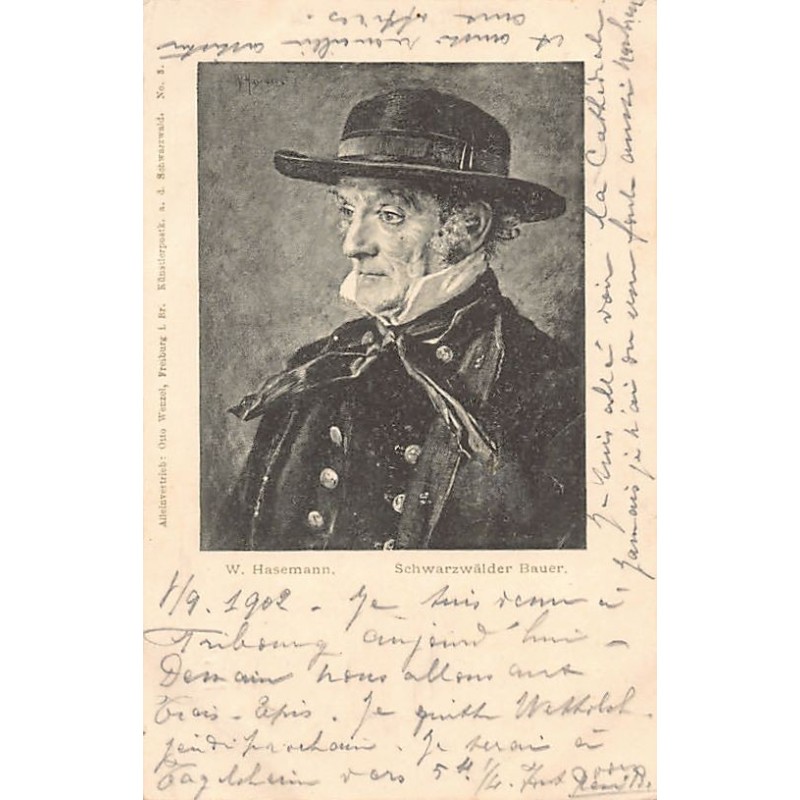 Alleinvertrieb: Otto Wenzel, Freiburg i. Br. Künstlerpostk. a. d. Schwarzwald. No. 3.
W. Hasemann. Schwarzwälder Bauer.
1/9. 1902 - Je suis venu à
Fribourg aujourd'hui -
Demain nous allons aux
Trois-Epis. Je quitte
jeudi prochain. Je serai à
vers 5 h 1/4.
Je suis allé voir la Cathédrale
Jamais je n'ai vu une aussi
et aussi